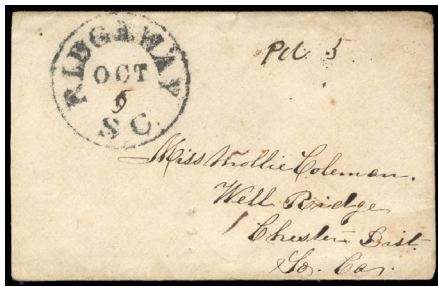 RIDGEWAY
OCT
5
S C.
Pd. 5
Miss Mollie Coleman.
Well Ridge
Chester Dist.
So. Car.